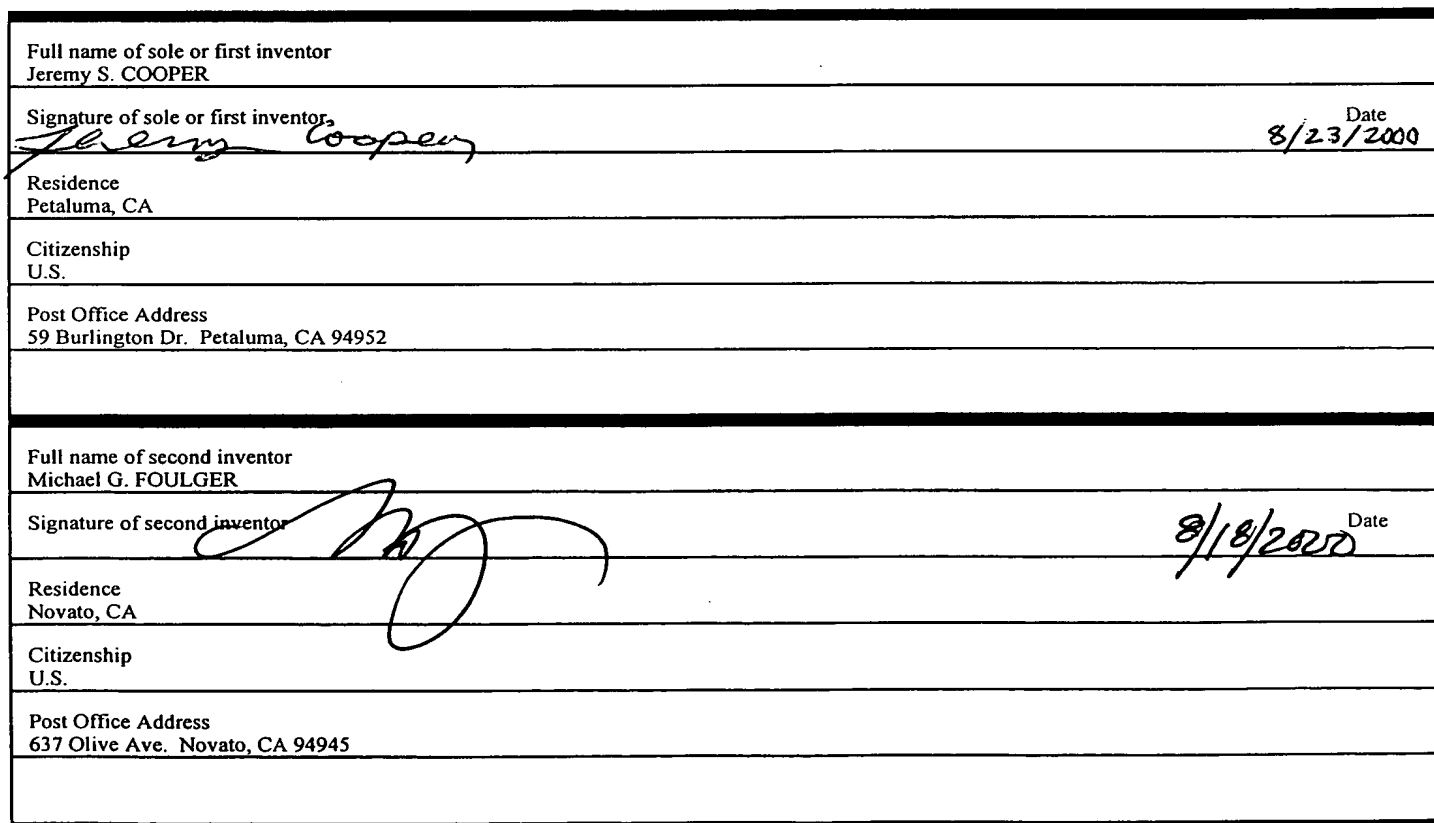 Full name of sole or first inventor
Jeremy S. COOPER
Signature of sole or first inventor
Date
Jeremy Cooper
8/23/2000
Residence
Petaluma, CA
Citizenship
U.S.
Post Office Address
59 Burlington Dr. Petaluma, CA 94952
Full name of second inventor
Michael G. FOULGER
Signature of second inventor
Date
8/18/2000
Residence
Novato, CA
Citizenship
U.S.
Post Office Address
637 Olive Ave. Novato, CA 94945